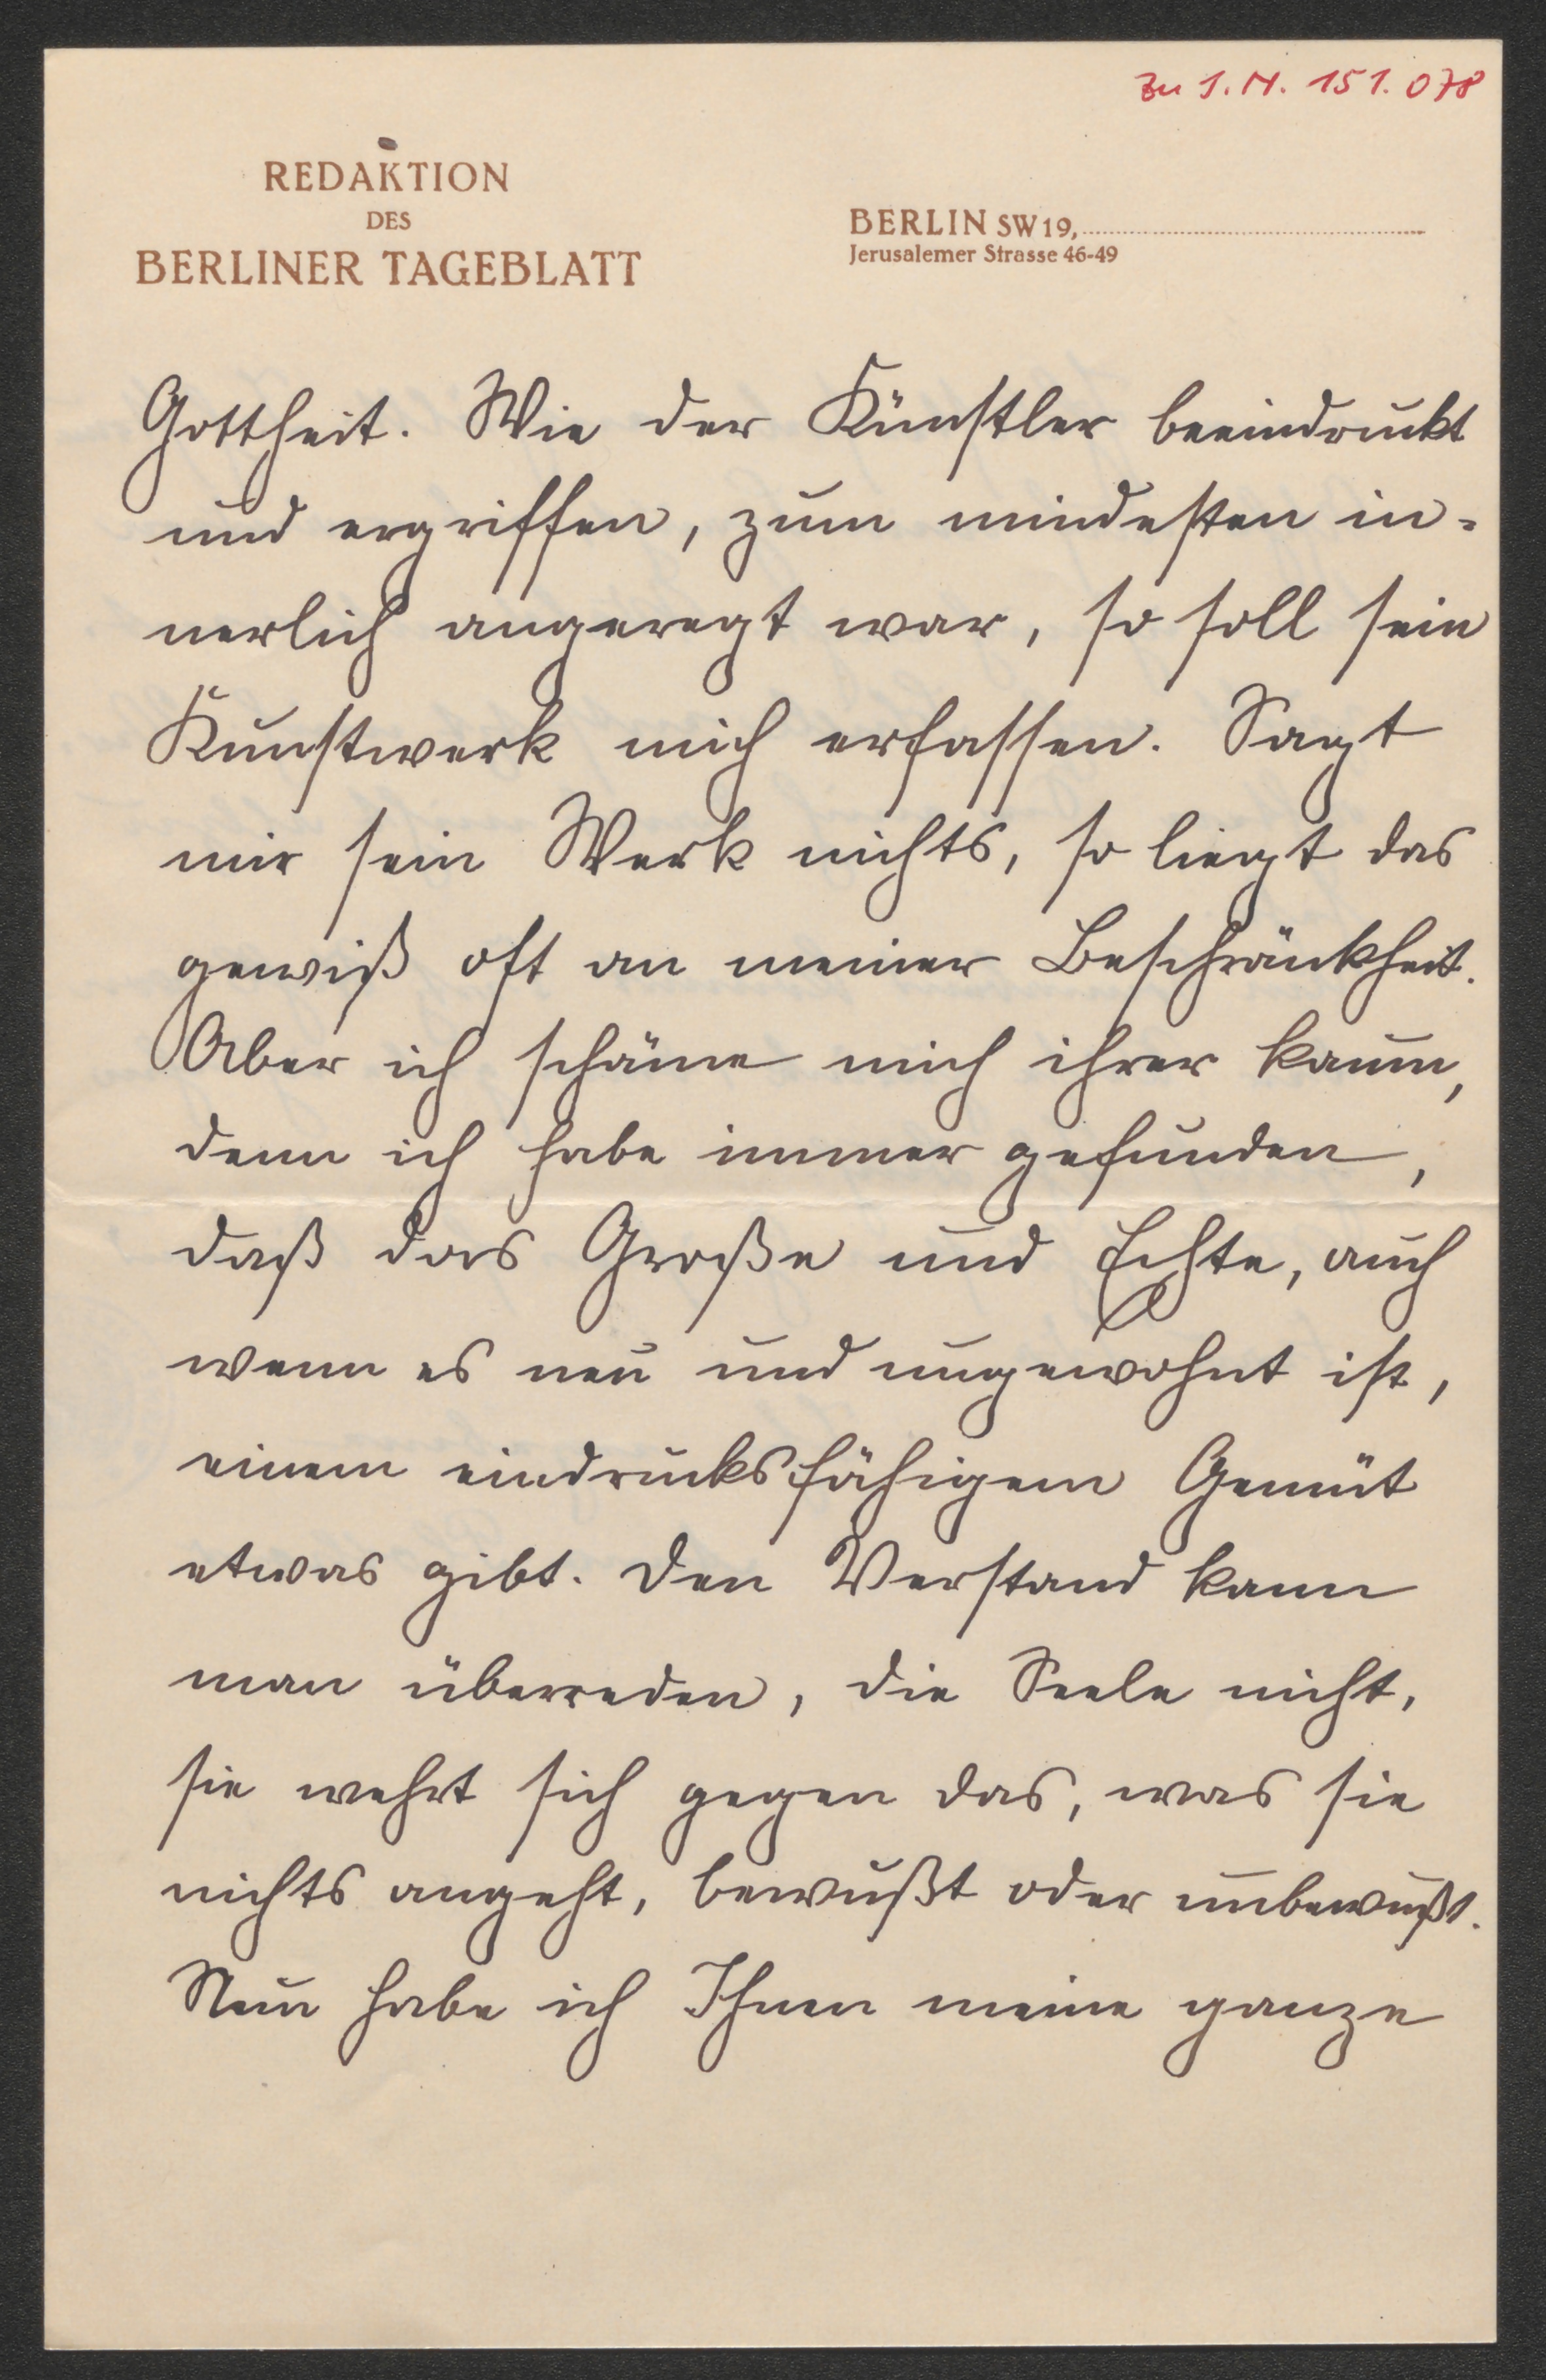 Zu I.N. 151.078
REDAKTION
DES
BERLINER TAGEBLATT
BERLIN SW 19,
Jerusalemer Strasse 46-49
Gottheit. Wie der Künstler beeindruckt
und ergriffen, zum mindesten in-
nerlich angeregt war, so soll sein
Kunstwerk mich erfassen. Sagt
mir sein Werk nichts, so liegt das
gewiß oft an meiner Beschränktheit.
Aber ich schäme mich ihrer kaum,
denn ich habe immer gefunden,
daß das Große und Echte, auch
wenn es neu und ungewohnt ist,
einem eindrucksfähigem Gemüt
etwas gibt. Den Verstand kann
man überreden, die Seele nicht,
sie wehrt sich gegen das, was sie
nichts angeht, bewußt oder unbewußt.
Nun habe ich Ihnen meine ganze